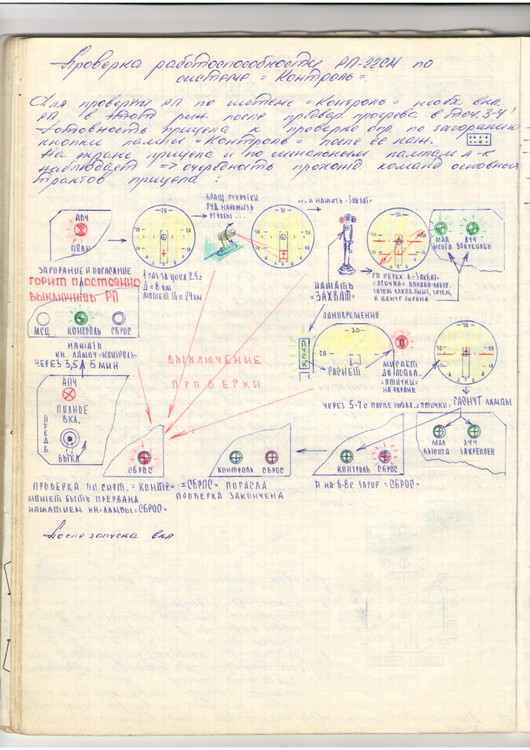 Проверка работоспособности РП-22СМ по
системе =Контроль=.
Для проверки РП по системе =Контроль= необх. вкл.
РП, в этот реж после прогрева в теч. 3-4'
Готовность прицела к проверке опр. по загоранию
кнопки лампы =Контроль= после её наж.
На экране прицела и по сигнальным лампам л-к
наблюдает => очередность прохожд команд основных
трактов прицела:
АПЧ
ПОЛН
ВРАЩ. РУКОЯТКИ
РУД НАЛОЖИТЬ
СТРОБЫ...
НАЖАТЬ "ЗАХВАТ"
МАЛ
ВЫСОТА
АУЧ
ЗАКРЕПЛЕН
ЗАГОРАНИЕ И ПОГАСАНИЕ
ГОРИТ ПОСТОЯННО
ВЫКЛЮЧИТЬ РП
1 РАЗ ЗА ЦИКЛ 2.5с
Д = 8 КМ
МОЖЕТ 16 и 24 КМ
НАЖАТЬ
"ЗАХВАТ"
РП ПЕРЕХ. В =ЗАХВАТ=
=ПТИЧКА= ВПРАВО-ВВЕРХ,
ЗАТЕМ ВЛЕВО-ВНИЗ, ЗАТЕМ
К ЦЕНТР ЭКРАНА
ОДНОВРЕМЕННО
МСЦ КОНТРОЛЬ СБРОС
НАЖАТЬ
КН. ЛАМПУ =КОНТРОЛЬ=
ЧЕРЕЗ 3,5 5 МИН
ВЫКЛЮЧЕНИЕ
ПРОВЕРКИ
ГАСНЕТ
МИГАЕТ
ДО ПОЯВЛ.
=ПТИЧКИ=
НА ЭКРАНЕ
ЧЕРЕЗ 5-7с ПОСЛЕ ПОЯВЛ. =ПТИЧКИ=
ГАСНУТ ЛАМПЫ
АПЧ
ПОЛНОЕ
ВКЛ.
ПРЕДВ.
ВЫКЛ.
СБРОС
КОНТРОЛЬ СБРОС
КОНТРОЛЬ СБРОС
МАЛ
ВЫСОТА
АУЧ
ЗАКРЕПЛЕН
ПРОВЕРКА ПО СИСТ. =КОНТР=
МОЖЕТ БЫТЬ ПРЕРВАНА
НАЖАТИЕМ КН-ЛАМПЫ =СБРОС=
=СБРОС= ПОГАСЛА
ПРОВЕРКА ЗАКОНЧЕНА
И НА 8-8с ЗАГОР =СБРОС=
После запуска вкл